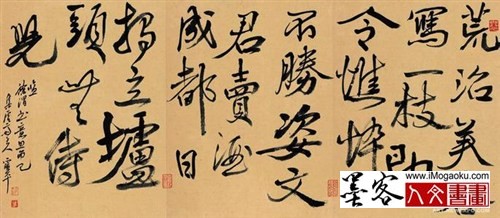 冶美
寫一枝即
令憔悴
不勝姿文
君賣酒
成都日
獨立壚
頭無侍
兒
www.iMogaoku.com
墨客
人文書畫